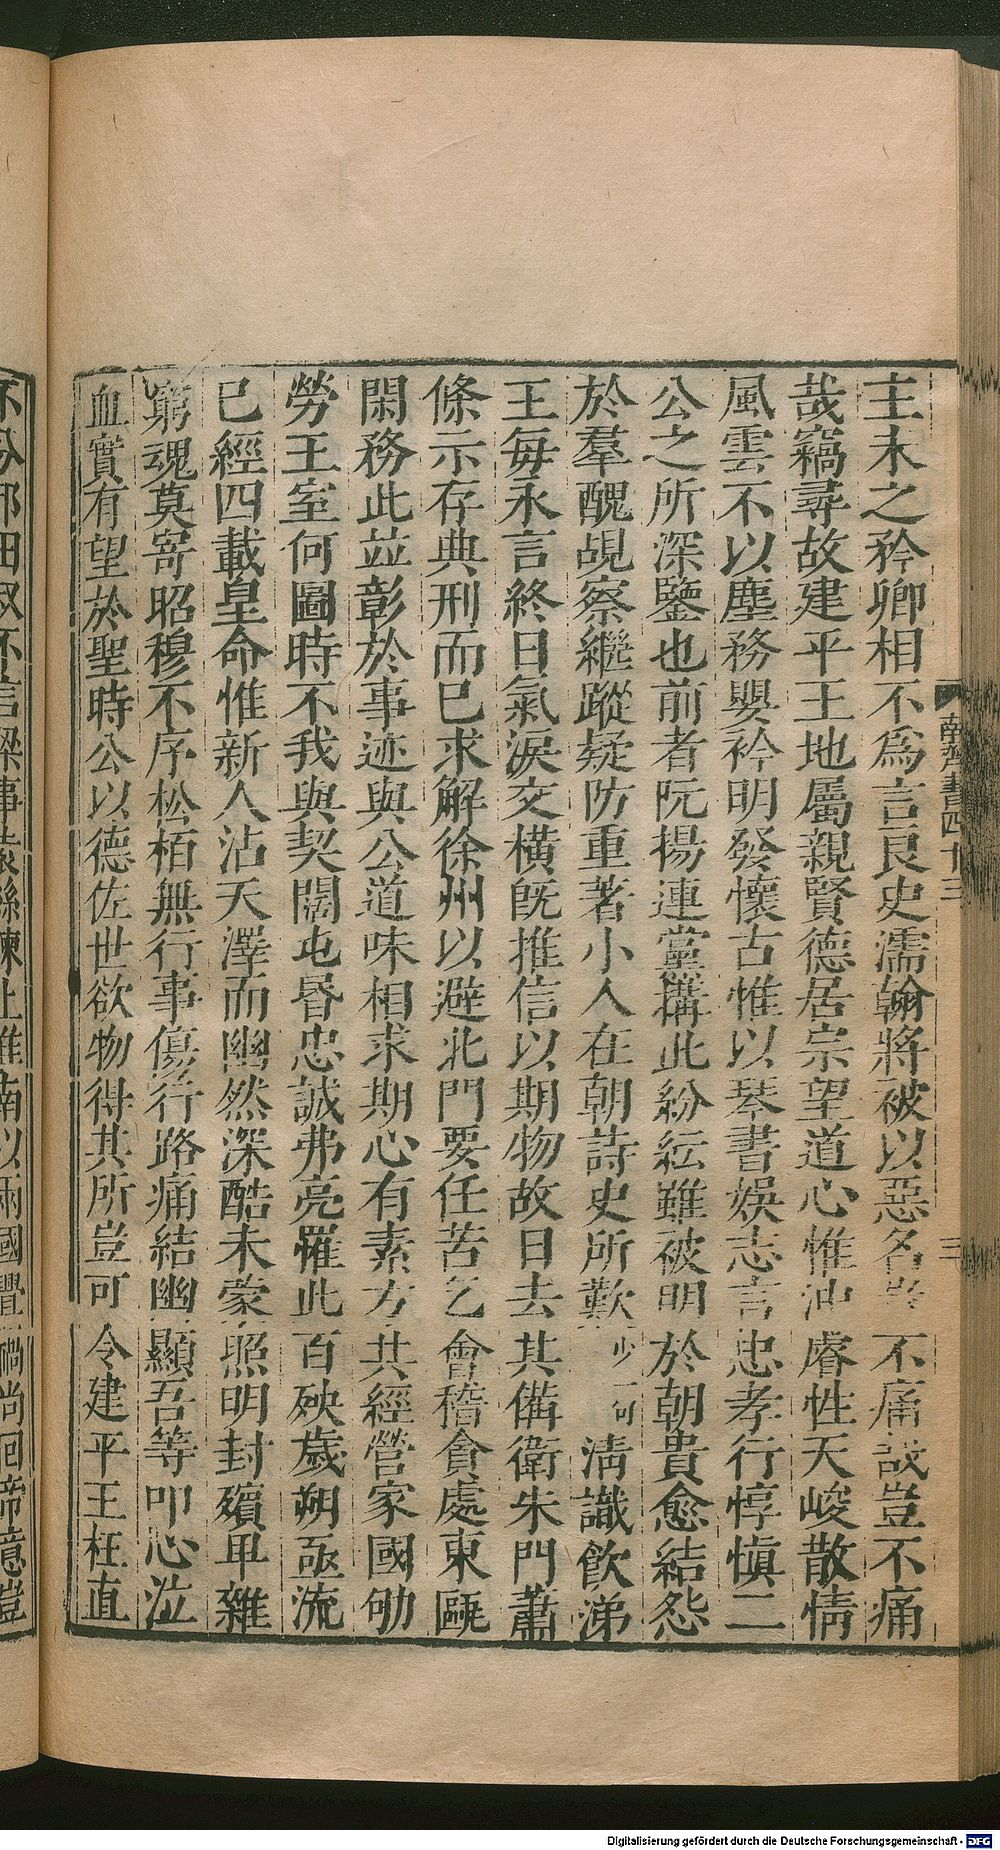 主未之矜卿相不爲言良史濡翰將被以惡名豈不痛哉豈不痛
哉竊尋故建平王地屬親賢德居宗望道心惟沖睿性天峻散情
風雲不以塵務嬰衿明發懷古惟以琴書娛志言忠孝行惇慎二
公之所深鑒也前者阮揚連黨搆此紛紜雖被明於朝貴愈結怨
於羣醜覘察繼蹤疑防重著小人在朝詩史所歎少一句淸識飲涕
王每永言終日氣淚交橫旣推信以期物故日去其備衛朱門蕭
條示存典刑而已求解徐州以避北門要任苦乞會稽貪處東甌
閑務此並彰於事迹與公道味相求期心有素方共經營家國劬
勞王室何圖時不我與契闊屯昬忠誠弗亮罹此百殃歲朔亟流
已經四載皇命惟新人沾天澤而幽然深酷未蒙照明封殯卑雜
窮魂莫寄昭穆不序松栢無行事傷行路痛結幽顯吾等叩心泣
血實有望於聖時公以德佐世欲物得其所豈可令建平王枉直
南齊書四十三
三
Digitalisierung gefördert durch die Deutsche Forschungsgemeinschaft - DFG